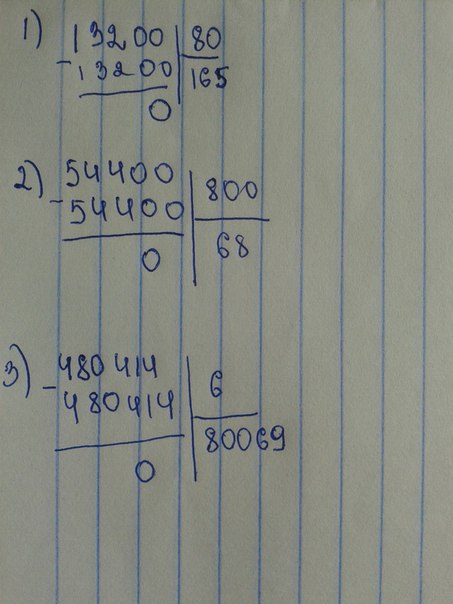 1) 13200 | 80
- 13200 | 165
0
2) 54400 | 800
- 54400 | 68
0
3) 480414 | 6
- 480414 | 80069
0